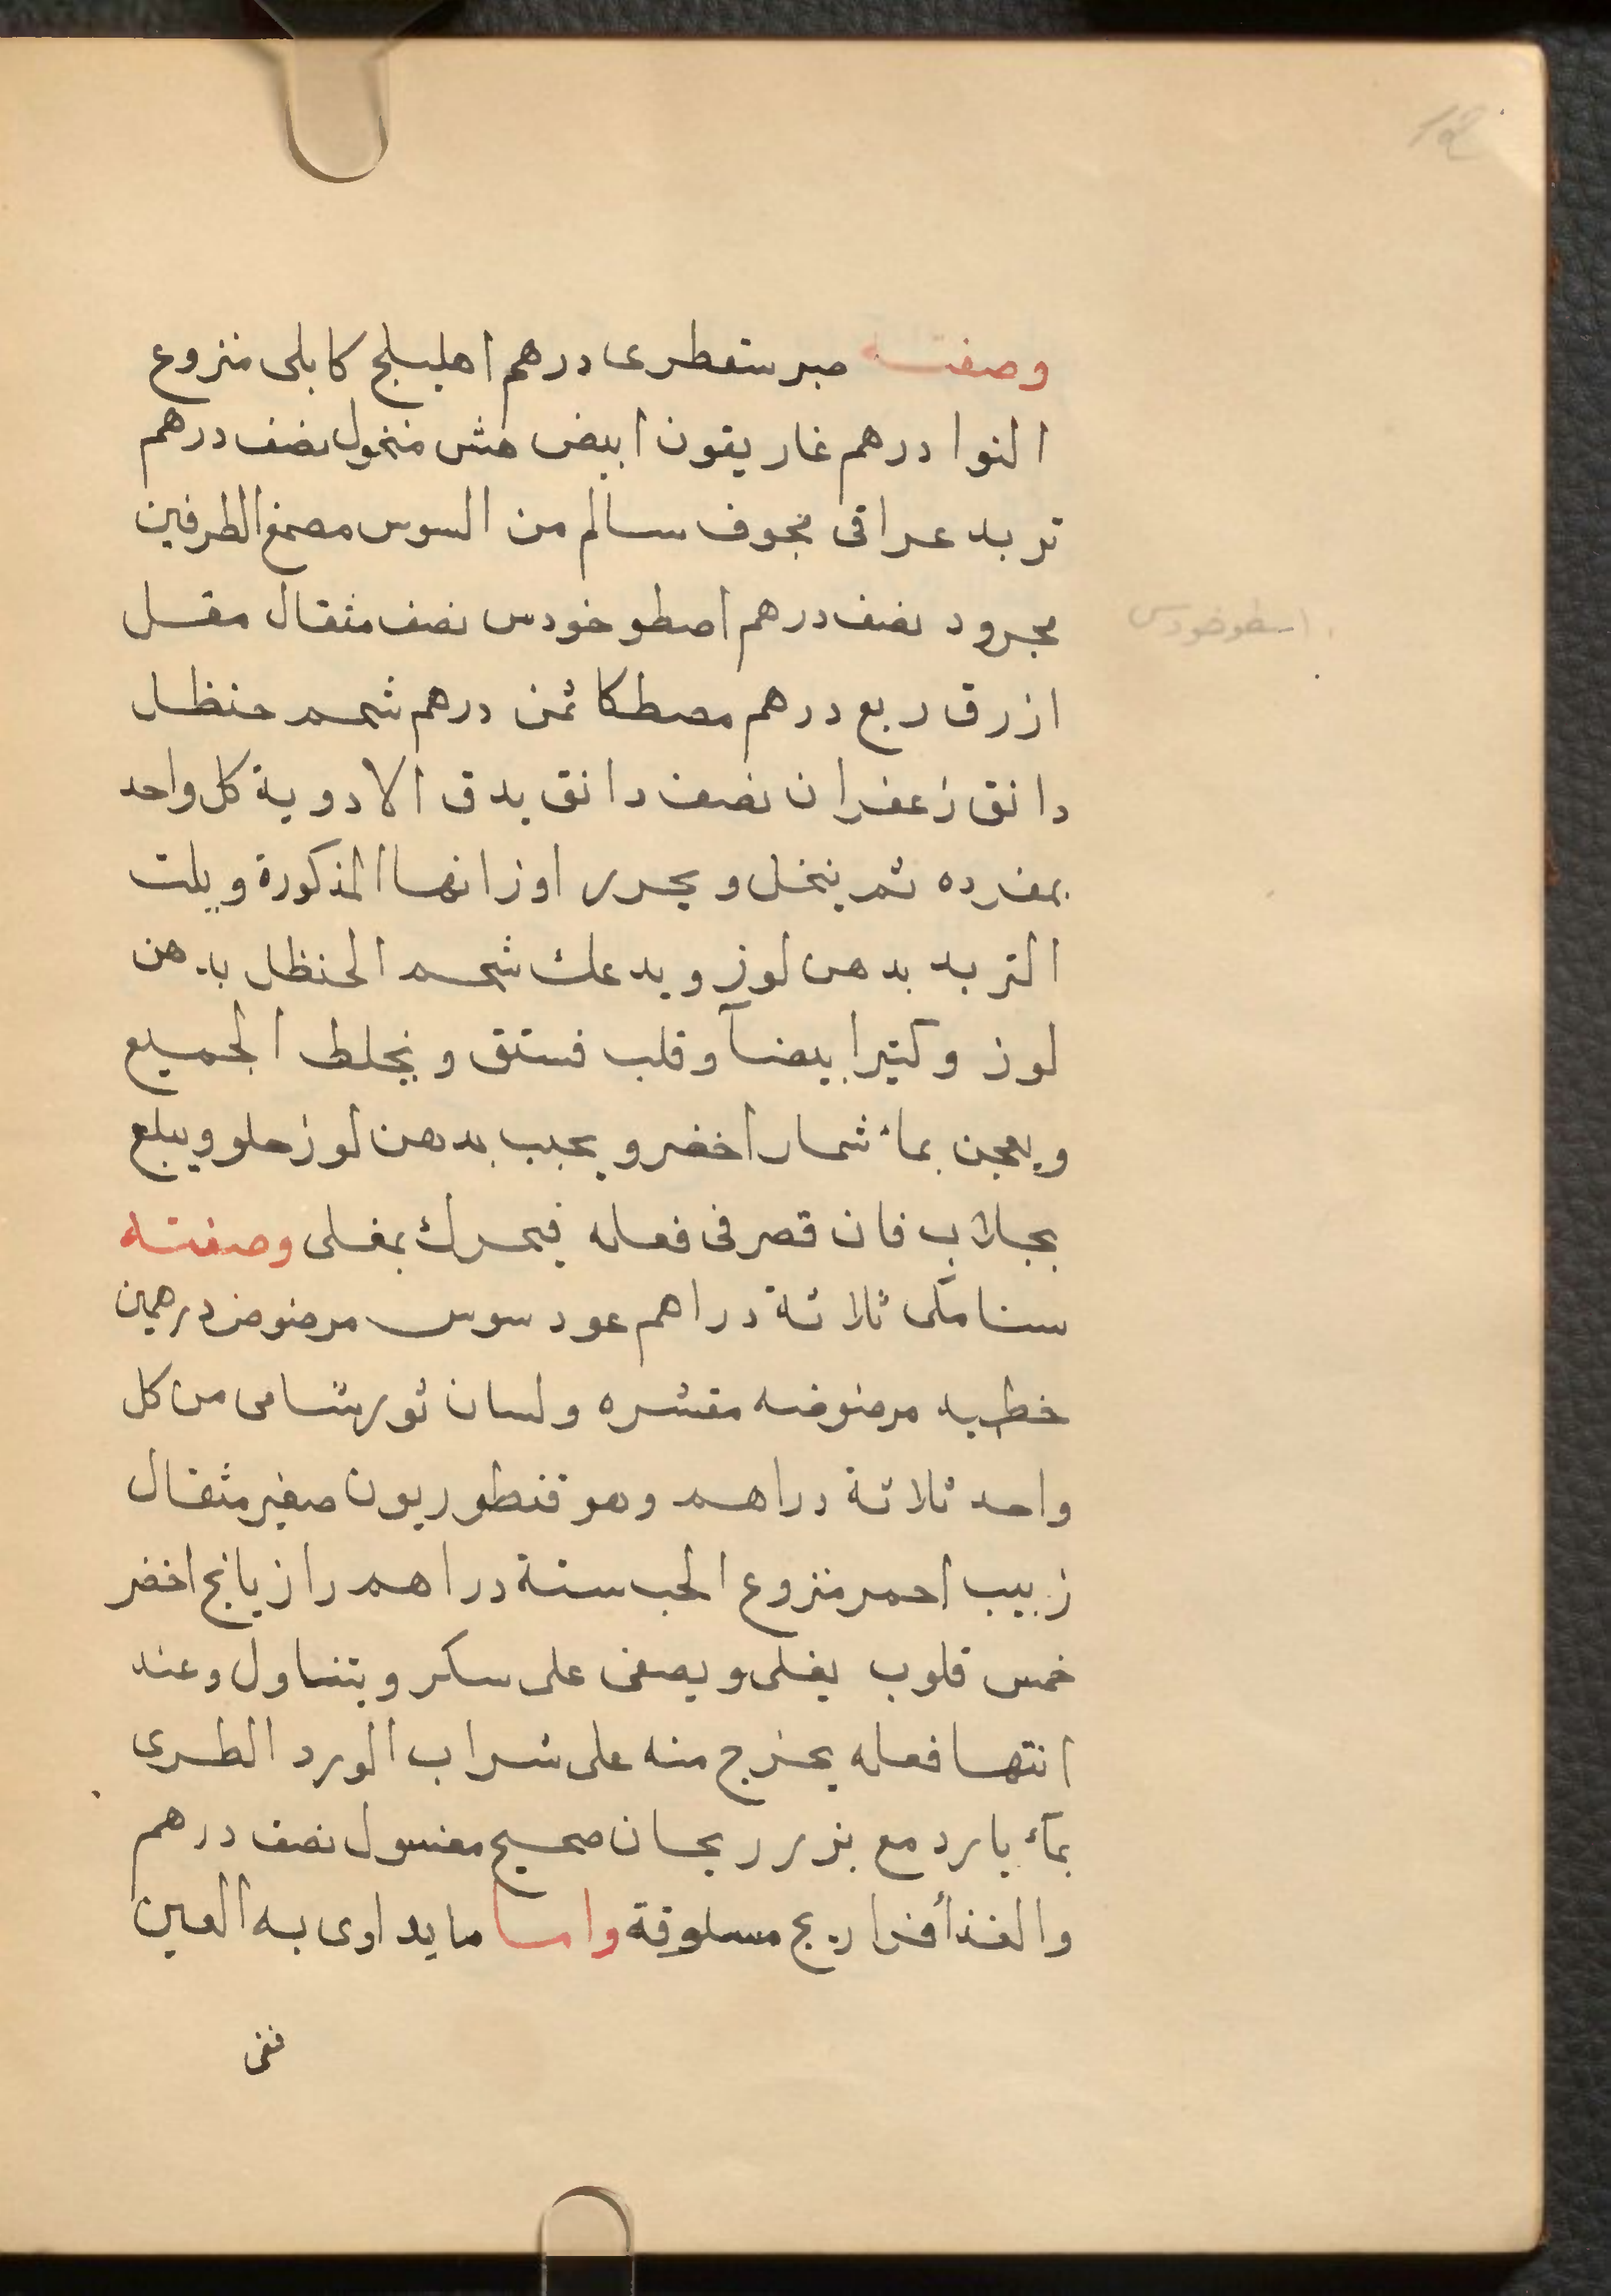 وصفته صبر سقطرى درهم اهليلج كابلى منزوع
النوا درهم غاريقون ابيض هش منخول نصف درهم
تربد عراقى مجوف سالم من السوس مصمغ الطرفين
مجرود نصف درهم اصطوخودس نصف مثقال مقل
اسطوخودس
ازرق ربع درهم مصطكا ثمن درهم شحم حنظل
دانق زعفران نصف دانق يدق الادوية كل واحد
بمفرده ثم ينخل ويحرر اوزانها المذكورة ويلت
التربد بدهن لوز ويدعك شحم الحنظل بدهن
لوز وكتيرا بيضآ وقلب فستق ويخلط الجميع
ويعجن بماء شمار اخضر ويحبب بدهن لوز حلو ويبلع
بجلاب فان قصر فى فعله فيحرك بمغلى وصفته
سنا مكى ثلاثة دراهم عود سوس مرضوض درهمين
خطميه مرضوضه مقشره ولسان ثور شامى من كل
واحد ثلاثة دراهم وهو قنطوريون صغير مثقال
زبيب احمر منزوع الحب ستة دراهم رازيانج اخضر
خمس قلوب يغلى ويصفى على سكر ويتناول وعند
انتها فعله يخرج منه على شراب الورد الطرى
بمآء بارد مع بزر ريحان صحيح مغسول نصف درهم
والغذأ فراريج مسلوقة واما ما يداوى به العين
ففى